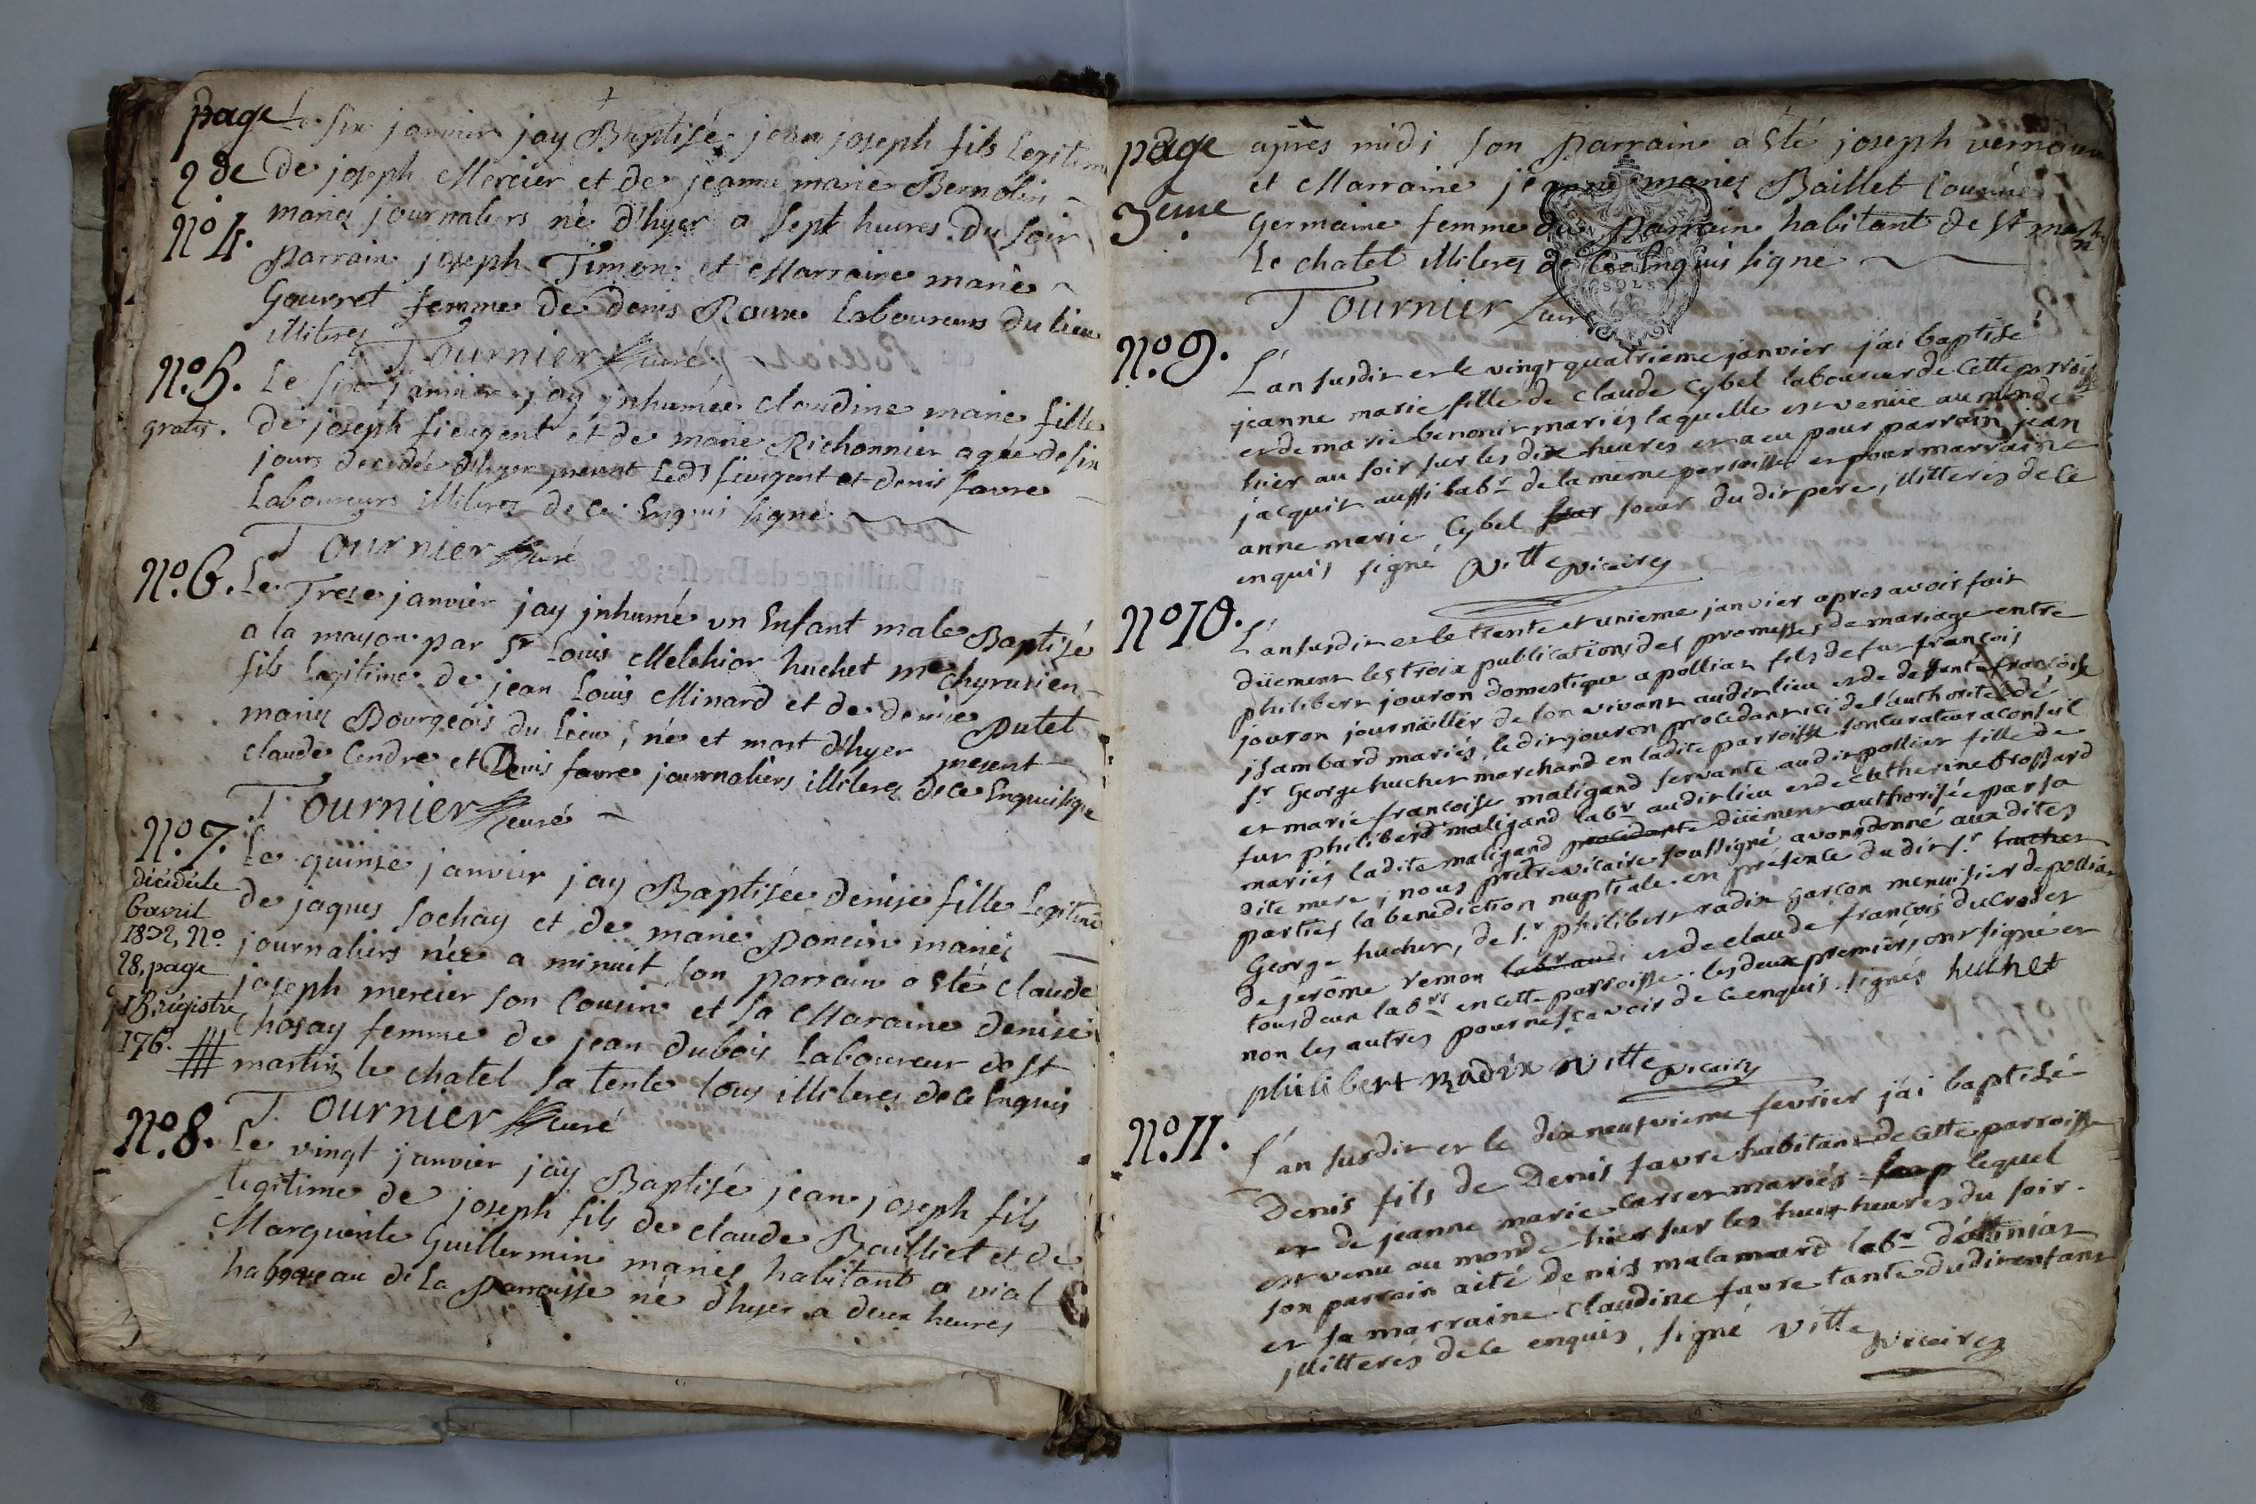 page
2de
Le six janvier jay Baptisé jean joseph fils legitime
de joseph Mercier et de jeanne marie Bernolin
N.o 4.
mariez journaliers né d'hyer a sept heures du soir
parrain joseph Timon et Marraine marie
Gouvret femme de denis Roux Laboureurs du lieu
illiteres
Tournier Curé
N.o 5.
gratis.
Le six janvier jay jnhumée claudine marie fille
de joseph fieugent et de marie Richonnier agée de six
jours decedée d'hyer present led fieugent et denis favre
Laboureurs illiteres de ce Enquis signé
Tournier Curé
N.o 6.
Le Treze janvier jay jnhumé un Enfant male Baptisé
a la mayson par Sr Louis Melchior huchet me chyrurien
fils legitime de jean Louis Minard et de denise Putet
mariez Bourgeois du Lieu, né et mort d'hyer present
claude Cendre et Denis favre journaliers illiteres de ce Enquis signe
Tournier Curé
N.o 7.
décédée le
6 avril
1832, N.o
28, page
18 régistre
176.
Le quinze janvier jay Baptisée denise fille Legitime
de jaques sochay et de marie Poncin mariez
journaliers née a minuit son parrain a Eté claude
joseph mercier son Cousin et sa Maraine denise
Chosay femme de jean dubois Laboureur de St
martin le chatel sa tente tous illiteres de ce Enquis
Tournier Curé
N.o 8.
Le vingt janvier jay Baptisé jean joseph fils
legitime de joseph fils de claude Bailliet et de
Marguerite Guillermin mariez habitant a vial
hameau de la parroisse né d'hyer a deux heures
page
3eme
après midi son parrain a Eté joseph vernoux
et Marraine jeanne mariez Baillet Cousine
Germaine femme du Parrain habitant de St martin
Le chatel illiteres de ce Enquis signe
Tournier Curé
N.o 9.
L'an susdit et le vingt quatrieme janvier j'ai baptisé
jeanne marie fille de claude Cybel laboureur de cette parroisse
et de marie benonir mariés laquelle est venüe au monde
hier au soir sur les dix heures et a eu pour parrain jean
jacquit aussi labr de la même parroisse et pour marraine
anne marie Cybel soeur du dit pere, illitteres de ce
enquis signé Vitte vicaire
N.o 10.
L'an susdit et le trente et unieme janvier apres avoir fait
düement les trois publications des promesses de mariage entre
philibert jouron domestique a polliat fils de fut françois
jouron journallier de son vivant audit lieu et de defunte francoise
jsambard mariés, ledit jouron procedant ici de l'authorité de
sr George huchet marchand en ladite parroisse son curateur a conseil
et marie francoise maligand servante audit polliat fille de
fut philiberd maligand labr audit lieu et de catherine Brossard
mariés ladite maligand procedante düement authorisée par sa
dite mere, nous prêtre vicaire soussigné avons donné aux dites
parties la benediction nuptiale en présence du dit sr huchet
George huchet, de sr philibert radix garçon menuisier de polliat
de jérôme vernon labr audi et de claude françois ducrozet
tous deux labrs en cette parroisse. les deux premiers ont signé et
non les autres pour ne scavoir de ce enquis. signés huchet
philibert Radix Vitte vicaire
N.o 11.
L'an susdit et le dix neuf vieme fevrier j'ai baptisé
Denis fils de Denis favre habitant de cette parroisse
et de jeanne marie carret mariés lequel
est venu au monde hier sur les huit heures du soir.
son parrain a été Denis malamard labr d'attiniat
et sa marraine claudine favre tante du dit enfant
jllitteres de ce enquis, signé Vitte vicaire